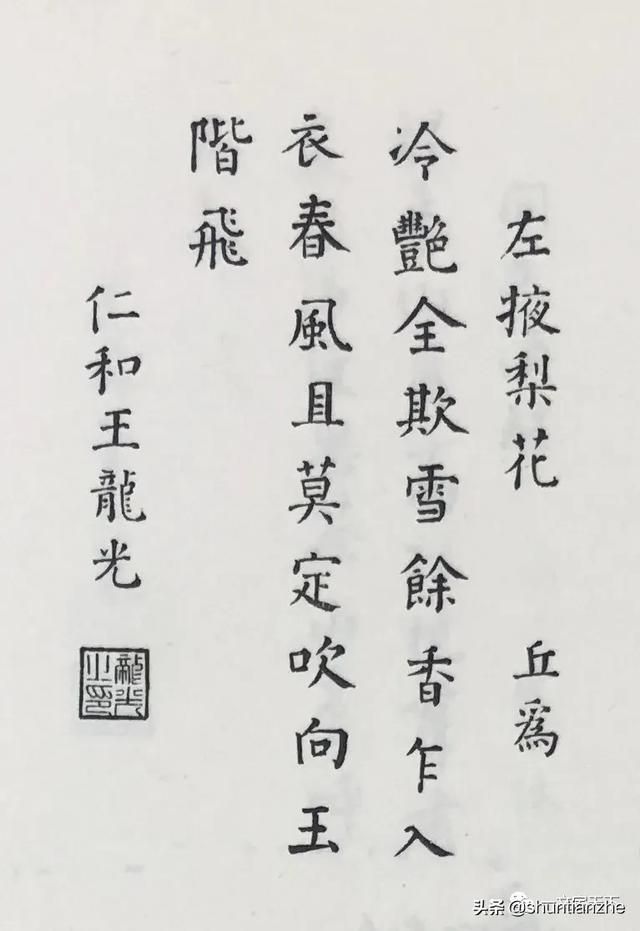 左掖梨花 丘爲
冷豔全欺雪餘香乍入
衣春風且莫定吹向玉
階飛
仁和王龍光
龍光之印
头条 @shuntianzhe